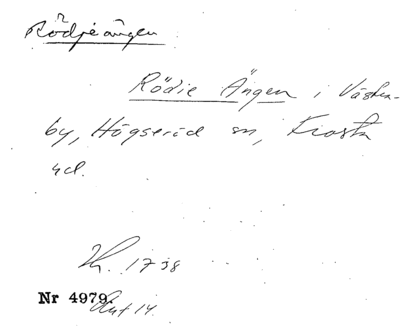 Rödjeängen
Rödie Ängen i Västra-
by, Högseröd sn, Frosta
hd.
1738
Nr 4979.
14.